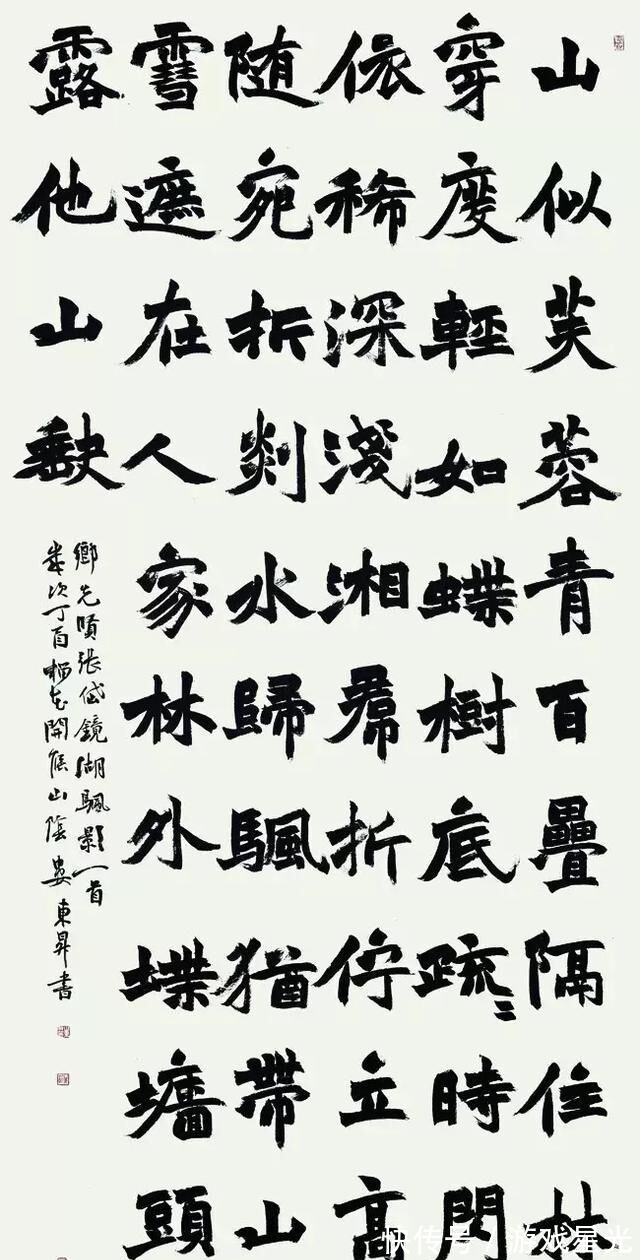 山似芙蓉青百疊隔住
穿度輕如蝶樹底疏〻時閃
依稀深淺湘帬折佇立高
随宛折剡水歸颿猶帶山
雪遮在人家林外堞墻頭
露他山缺
鄉先賢張岱鏡湖颿影一首
歲次丁酉花開候山陰婁東昇書
快传号/游戏星光